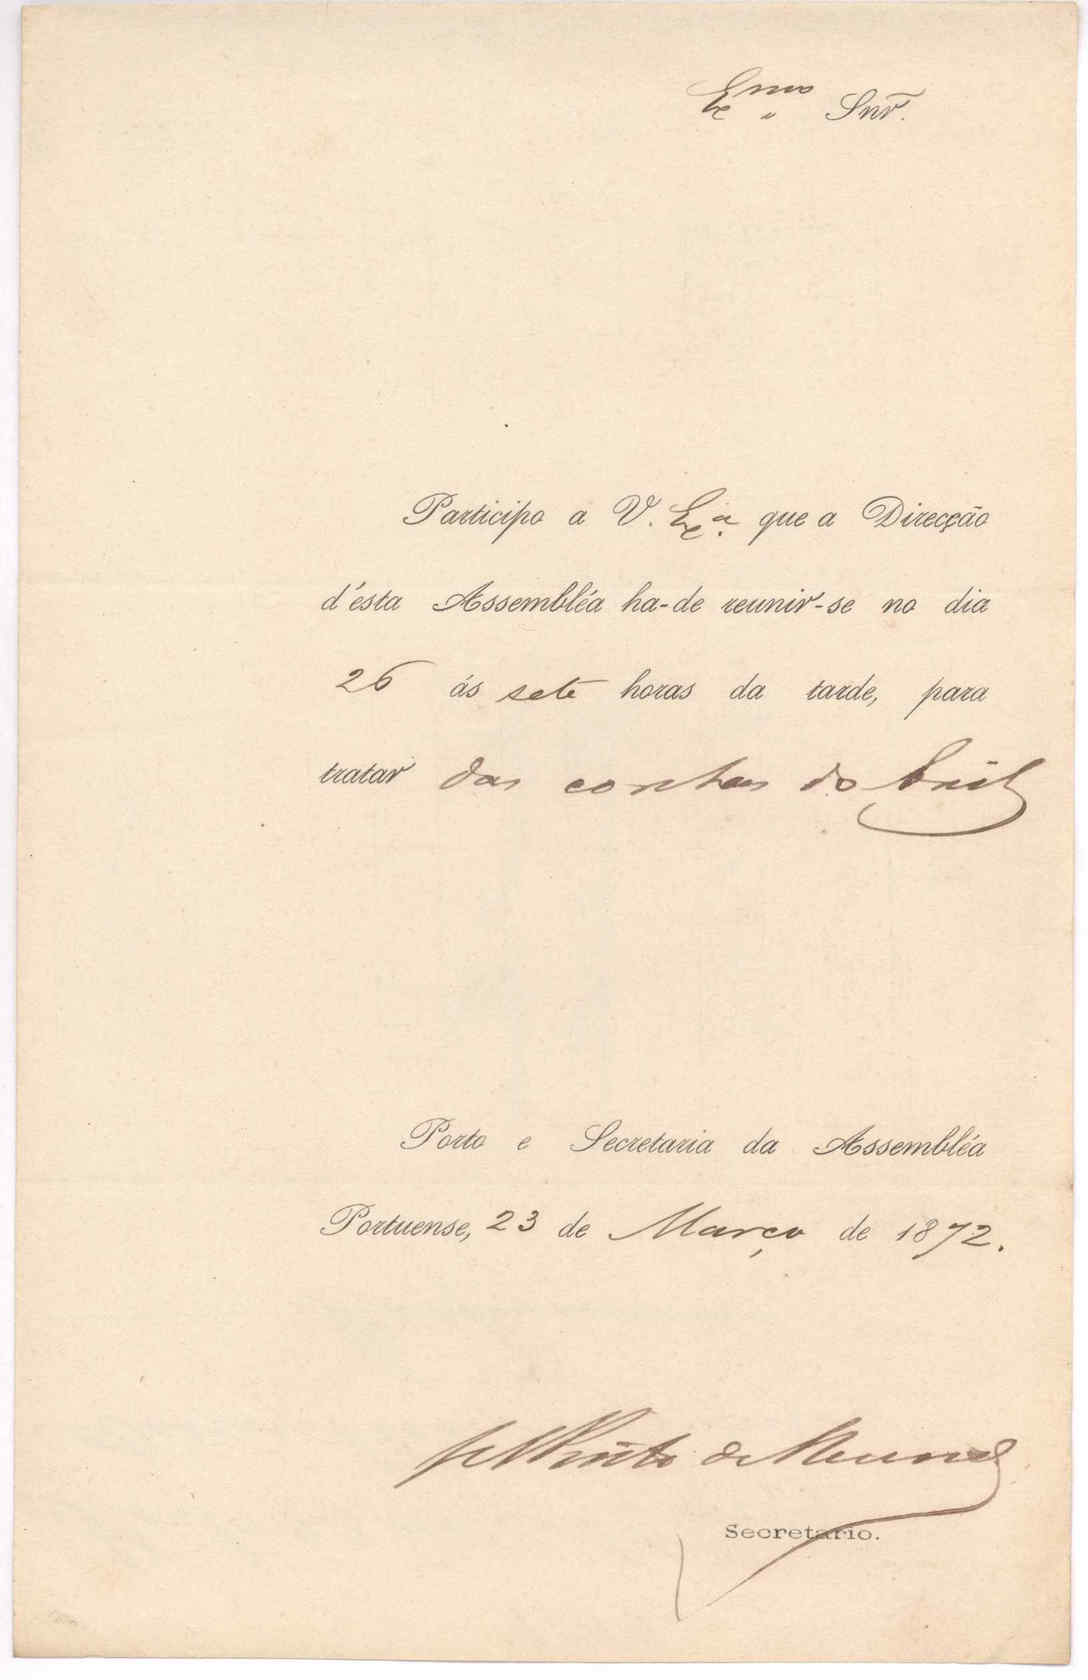 Exmo Snr.
Participo a V. Exa. que a Direcção
d'ésta Assembléa ha-de reunir-se no dia
26 ás sete horas da tarde, para
tratar das contas do
Porto e Secretaria da Assembléa
Portuense, 23 de Março de 1872.
Pinto de
Secretario.